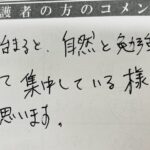 護者の方のコメン
始まると、自然と勉強
て集中している様
思います。